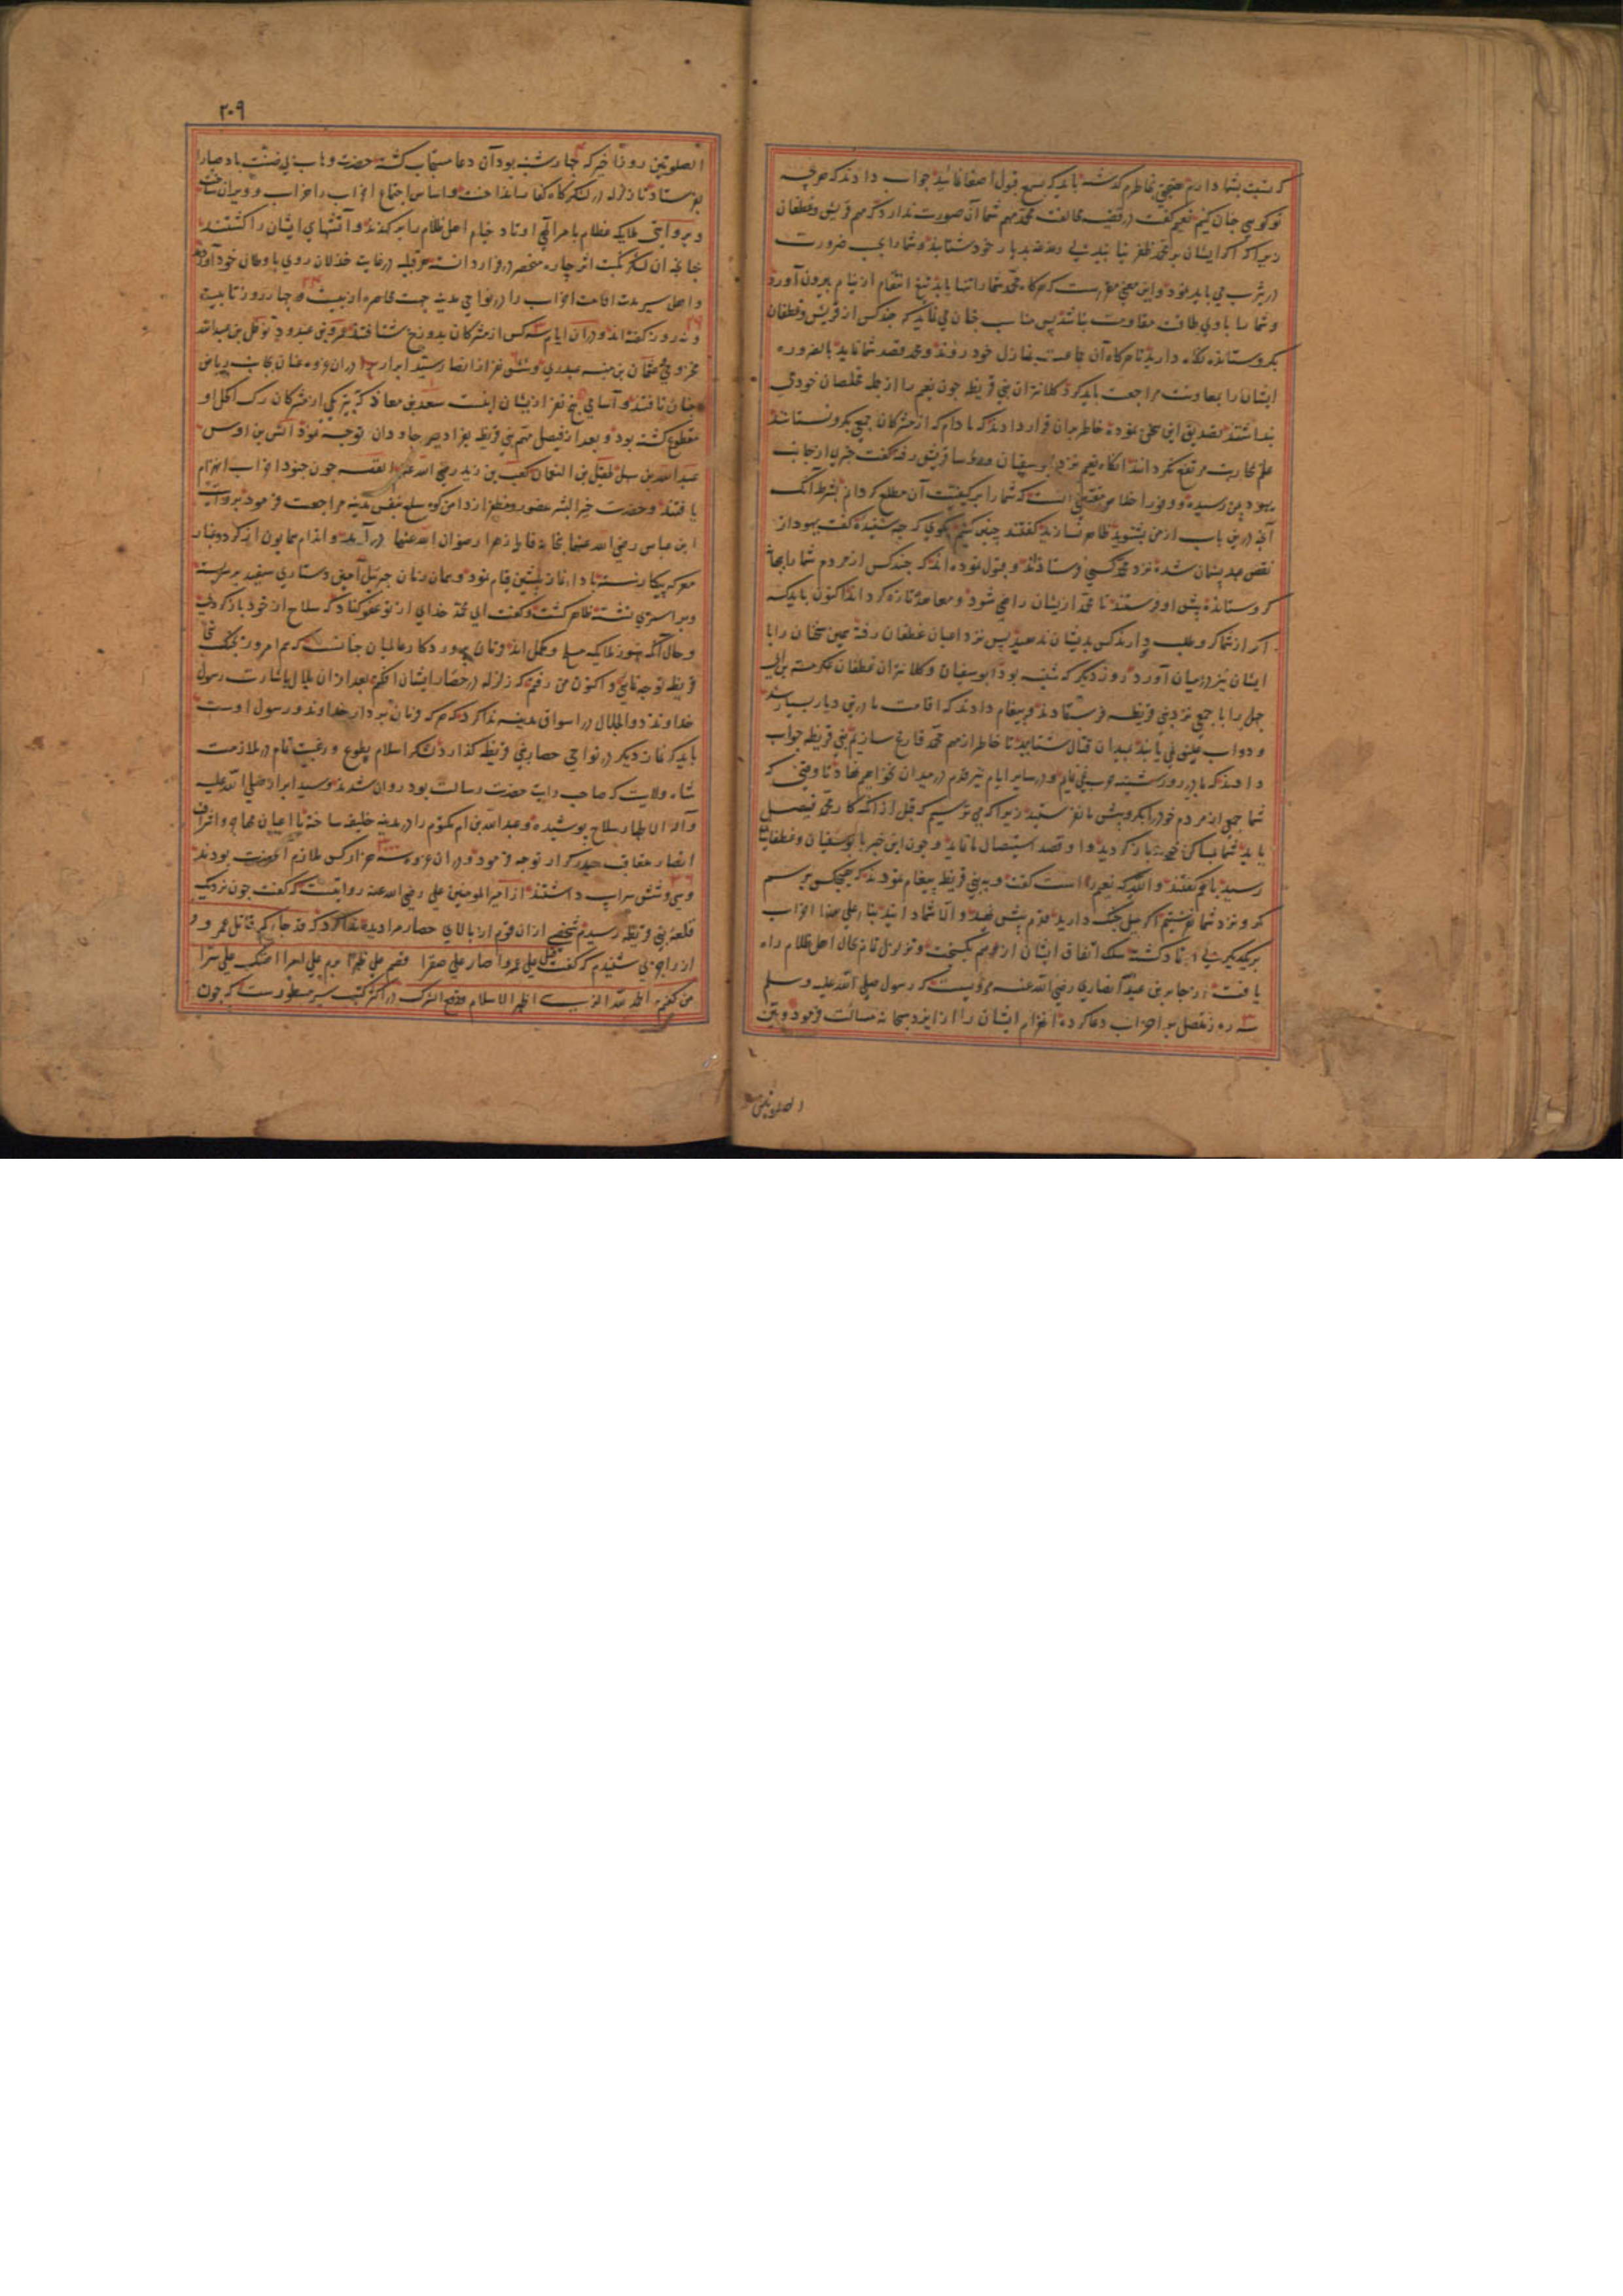 که نسبت بشما دارم هیچ بخاطرم گذشته باید که بسمع قبول اصغا نمائید جواب دادند که هرچه
تو گویی چنان کنیم نعیم گفت در قضیه مخالفت محمد مهم شما آن صورت ندارد که مهم قریش و غطفان
زیرا که اگر ایشان بر محمد ظفر نیابند بدیار خود شتابند و شما را بی ضرورت
در یثرب می باید بود و این معنی مقررست که هرگاه محمد شما را تنها یابد تیغ انتقام از نیام بیرون آورد
و شما را با وی طاقت مقاومت نباشد پس مناسب چنان می نماید که چند کس از قریش و غطفان
بگرو ستانده نگاه دارید تا هرگاه آن جماعت بمنازل خود روند و محمد قصد شما نماید بالضروره
ایشان را بمعاونت مراجعت باید کرد کلانتران بنی قریظه چون نعیم را از جمله مخلصان خود می
پنداشتند تصدیق این سخن نموده خاطر بران قرار دادند که مادام که از مشرکان جمعی بگرو نستانند
علم محاربت مرتفع نگردانند آنگاه نعیم نزد ابوسفیان و رفته گفت خبری از جانب
یهود بمن رسیده و وفور اخلاص مقتضی است که شما را بر کیفیت آن مطلع گردانم بشرط آنکه
آنچه درین باب از من بشنوید ظاهر نسازید گفتند چنین کنیم بگوی که چه شنیده گفت یهود از
نقض عهد پشیمان شده نزد محمد کسی فرستادند و قبول نموده اند که چند کس از مردم شما را بهانه
گرو ستانده پیش او فرستند تا محمد ازیشان راضی شود و معاهده تازه کرده اند اکنون باید که
اگر از شما گرو طلب دارند کس بدیشان ندهید پس نزد اعیان غطفان رفته همین سخنان را با
ایشان نیز در میان آورد روز دیگر که شنبه بود ابوسفیان و کلانتران غطفان عکرمة بن ابی
جهل را با جمعی نزد بنی قریظه فرستادند و پیغام دادند که اقامت ما درین دیار بسیار شد
و دواب علیق نمی یابند بمیدان قتال شتابید تا خاطر از مهم محمد فارغ سازیم بنی قریظه جواب
دادند که ما در روز شنبه حرب نمی نمائیم و در سایر ایام نیز قدم در میدان نخواهیم نهاد تا وقتی که
شما جمعی از مردم خود را بگرو پیش ما نفرستید زیرا که می ترسیم که قبل از آنکه کار محمد فیصل
یابد شما بمساکن خویش باز گردید و او قصد استیصال ما نماید و چون این خبر با ابوسفیان و غطفانیان
رسید باهم گفتند والله که نعیم راست گفت و به بنی قریظه پیغام نمودند که هیچکس برسم
گرو نزد شما نفرستیم اگر میل جنگ دارید قدم پیش نهید و الا شما دانید بنا علی هذا احزاب
بر یکدیگر بی اعتماد گشته سلک اتفاق ایشان از هم بگسیخت و تزلزل تمام بحال اهل ظلام راه
یافت از جابر بن عبدالله انصاری رضی الله عنه مرویست که رسول صلی الله علیه وسلم
سه روز متصل بر احزاب دعا کرده انهزام ایشان را از ایزد سبحانه مسالت فرمود و بین
الصلوتین
۲۰۹
الصلوتین روز اخیر که چهارشنبه بود آن دعا مستجاب گشته حضرت وهاب بی منت باد صبا را
بفرستاد تا زلزله در لشکرگاه کفار انداخت و اساس اجتماع احزاب را خراب و ویران ساخت
و بروایتی ملایکه عظام بامر الهی اوتاد خیام اهل ظلام را برکندند و آتشهای ایشان را کشتند
چنانچه آن لشکر نکبت اثر چاره منحصر در فرار دانسته هر قبیله در غایت خذلان روی باوطان خود آوردند
و اهل سیر مدت اقامت احزاب را در نواحی مدینه جهت محاصره از بیست و چهار روز تا بیست
و نه روز گفته اند و دران ایام سه کس از مشرکان بدوزخ شتافتند عمرو بن عبدود نوفل بن عبدالله
مخزومی عثمان بن منبه عبدری و شش نفر از انصار سید ابرار دران غزوه عنان بجانب ریاض
جنان تافتند و اسامی پنج نفر ازیشان اینست سعد بن معاذ که بتیر یکی از مشرکان رگ اکحل او
مقطوع گشته بود و بعد از فیصل مهم بنی قریظه بفرادیس جاودان توجه نمود انس بن اوس
عبدالله بن سهل طفیل بن النعمان کعب بن زید رضی الله عنهم القصه چون جنود احزاب انهزام
یافتند و حضرت خیر البشر مظفر از دامن کوه سلع بنفس مدینه مراجعت فرمود بروایت
ابن عباس رضی الله عنهما بخانه فاطمه زهرا رضوان الله عنها درآمده و اندام همایون از گرد و غبار
معرکه پیکار شسته بادای نماز پیشین قیام نمود و همان زمان جبرئیل آمین دستاری سفید بر سر بسته
و بر استری نشسته ظاهر گشت و گفت ای محمد خدای از تو عفو کناد که سلاح از خود باز کردی
و حال آنکه هنوز ملایکه مسلح و مکمل اند و فرمان پروردگار عالمیان چنانست که هم امروز بجنگ بنی
قریظه توجه نمائی و اکنون من رفتم که زلزله در حصار ایشان افکنم بعد ازان بلال باشارت رسول
خداوند ذوالجلال در اسواق مدینه ندا کرد که هرکه فرمان بردار خداوند و رسول اوست
باید که نماز دیگر در نواحی حصار بنی قریظه گذارد لشکر اسلام بطوع و رغبت تمام در ملازمت
شاه ولایت که صاحب رایت حضرت رسالت بود روان شدند و سید ابرار صلی الله علیه
وآله الاطهار سلاح پوشیده و عبدالله بن ام مکتوم را در مدینه خلیفه ساخته با اعیان مهاجر و اشراف
انصار متعاقب حیدر کرار توجه فرمود و دران غزوه سه هزار کس ملازم آنحضرت بودند
و سی و شش سر اسب داشتند از امیر المومنین علی رضی الله عنه روایتست که گفت چون نزدیک
قلعه بنی قریظه رسیدم شخصی ازان قوم از بالای حصار مرا دیده ندا کرد که قد جاءکم قاتل عمرو و
از راجزی شنیدم که گفت قتل علی عمروا صار علی صقرا قصم علی ظهرا ابرم علی امرا هتک علی سترا
من گفتم الحمد لله الذی اظهر الاسلام و قمع الشرک در اکثر کتب سیر مسطورست که چون